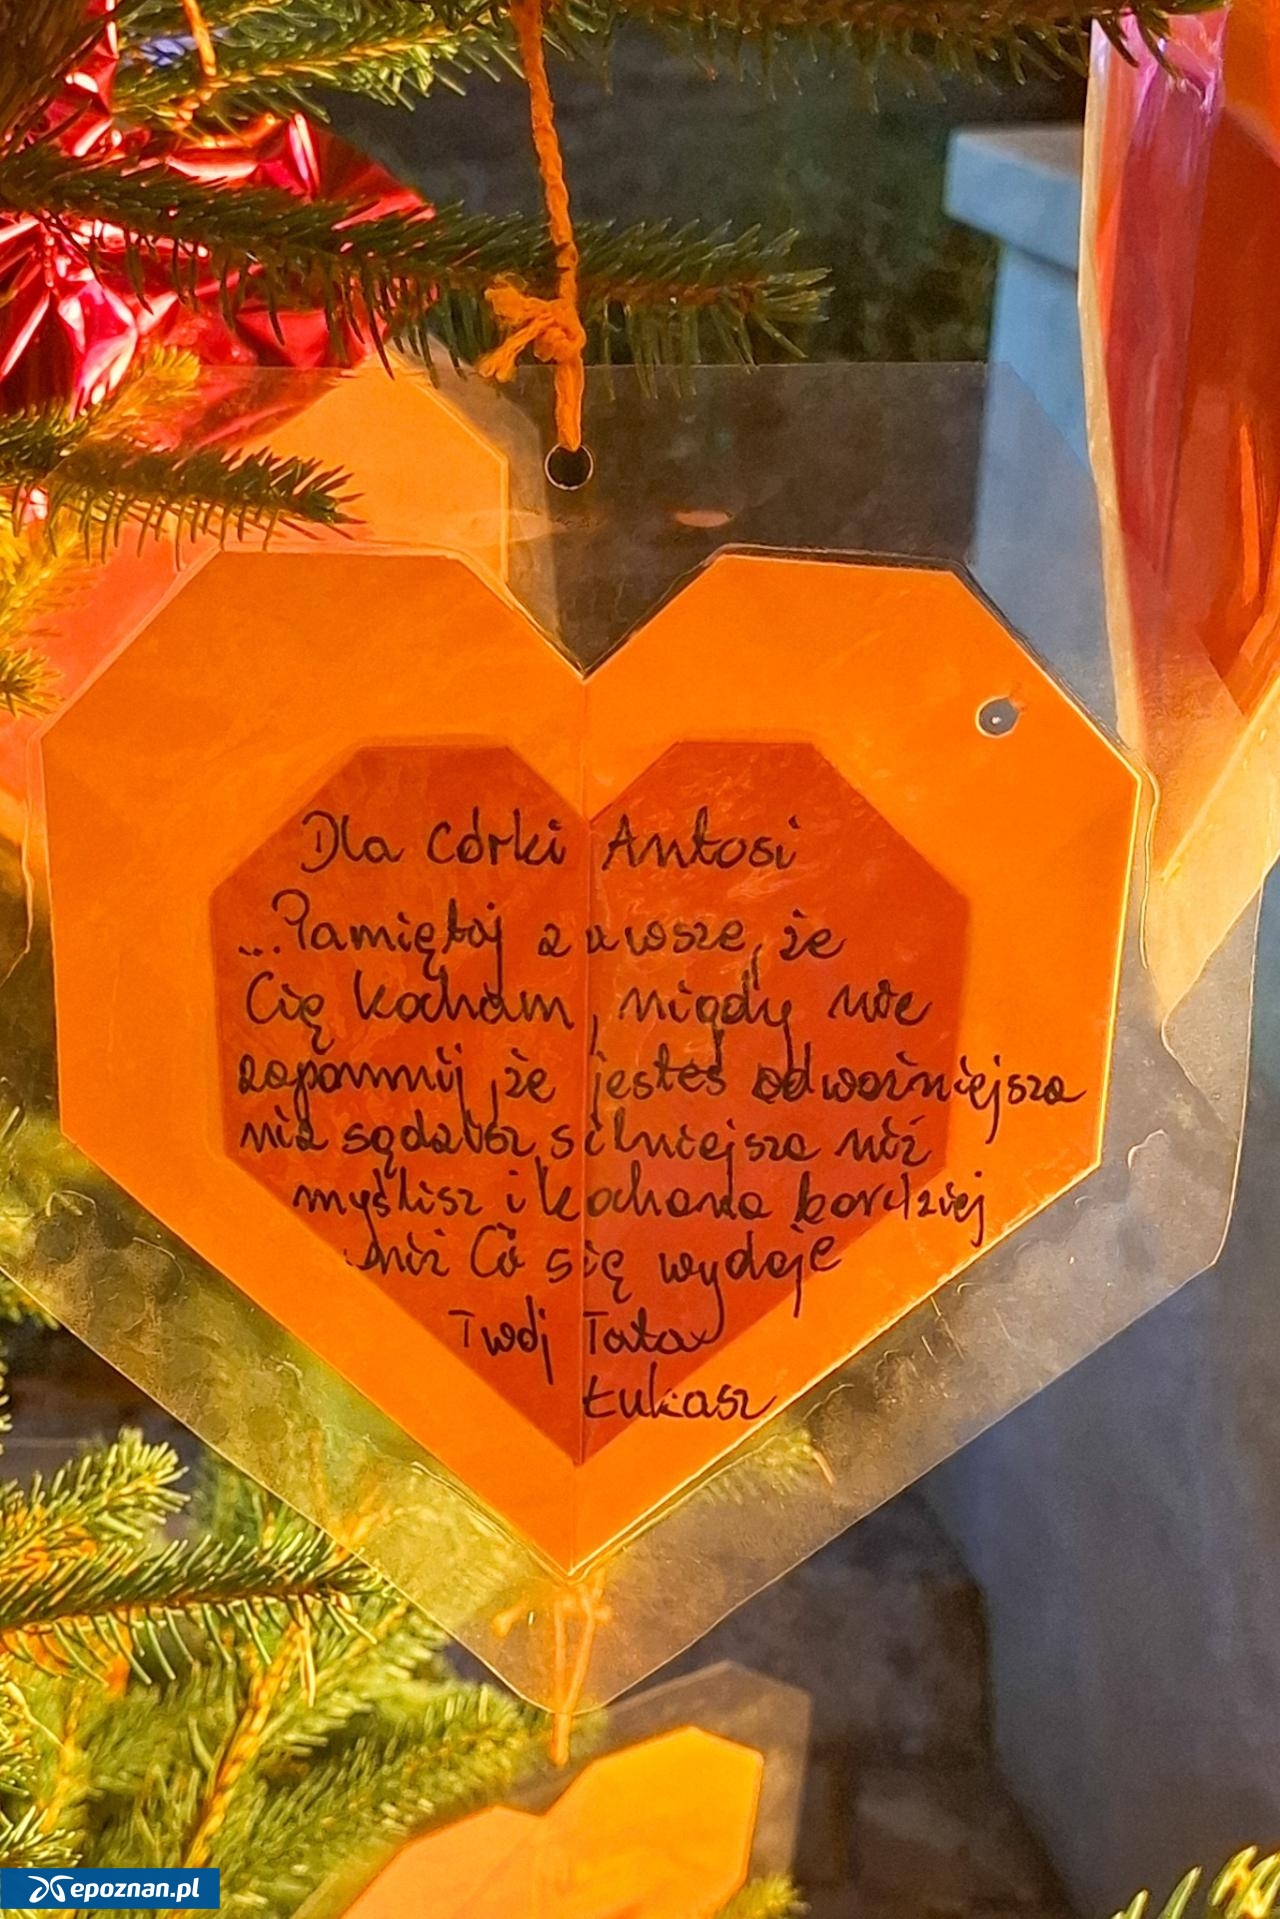 Dla córki Antosi
...Pamiętaj zawsze, że
Cię kocham, nigdy nie
zapomnij, że jesteś odważniejsza
niż sądzisz, silniejsza niż
myślisz i kochana bardziej
niż Ci się wydaje
Twój Tata
Łukasz
epoznan.pl